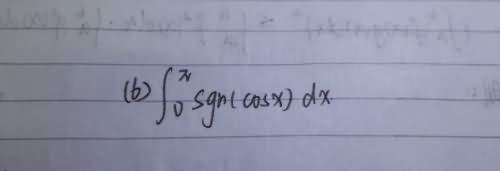 (b) ∫₀^π sgn(cosx) dx